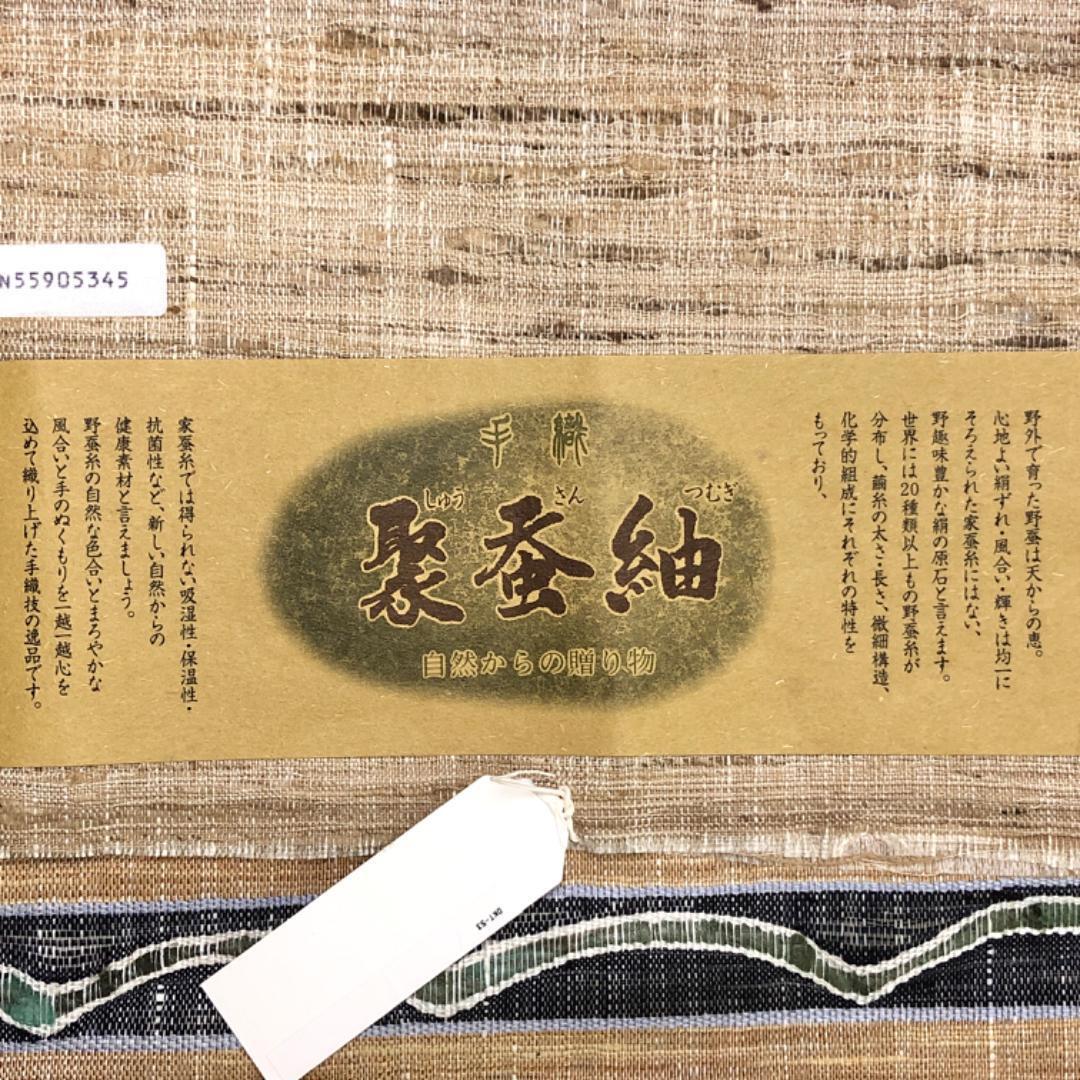 N55905345
手織
聚蚕紬
しゅう さん つむぎ
自然からの贈り物
野外で育った野蚕は天からの恵。
心地よい絹ずれ・風合い・輝きは均一に
そろえられた家蚕糸にはない、
野趣味豊かな絹の原石と言えます。
世界には20種類以上もの野蚕糸が
分布し、繭糸の太さ・長さ、微細構造、
化学的組成にそれぞれの特性を
もっており、
家蚕糸では得られない吸湿性・保温性・
抗菌性など、新しい自然からの
健康素材と言えましょう。
野蚕糸の自然な色合いとまろやかな
風合いと手のぬくもりを一越一越心を
込めて織り上げた手織技の逸品です。